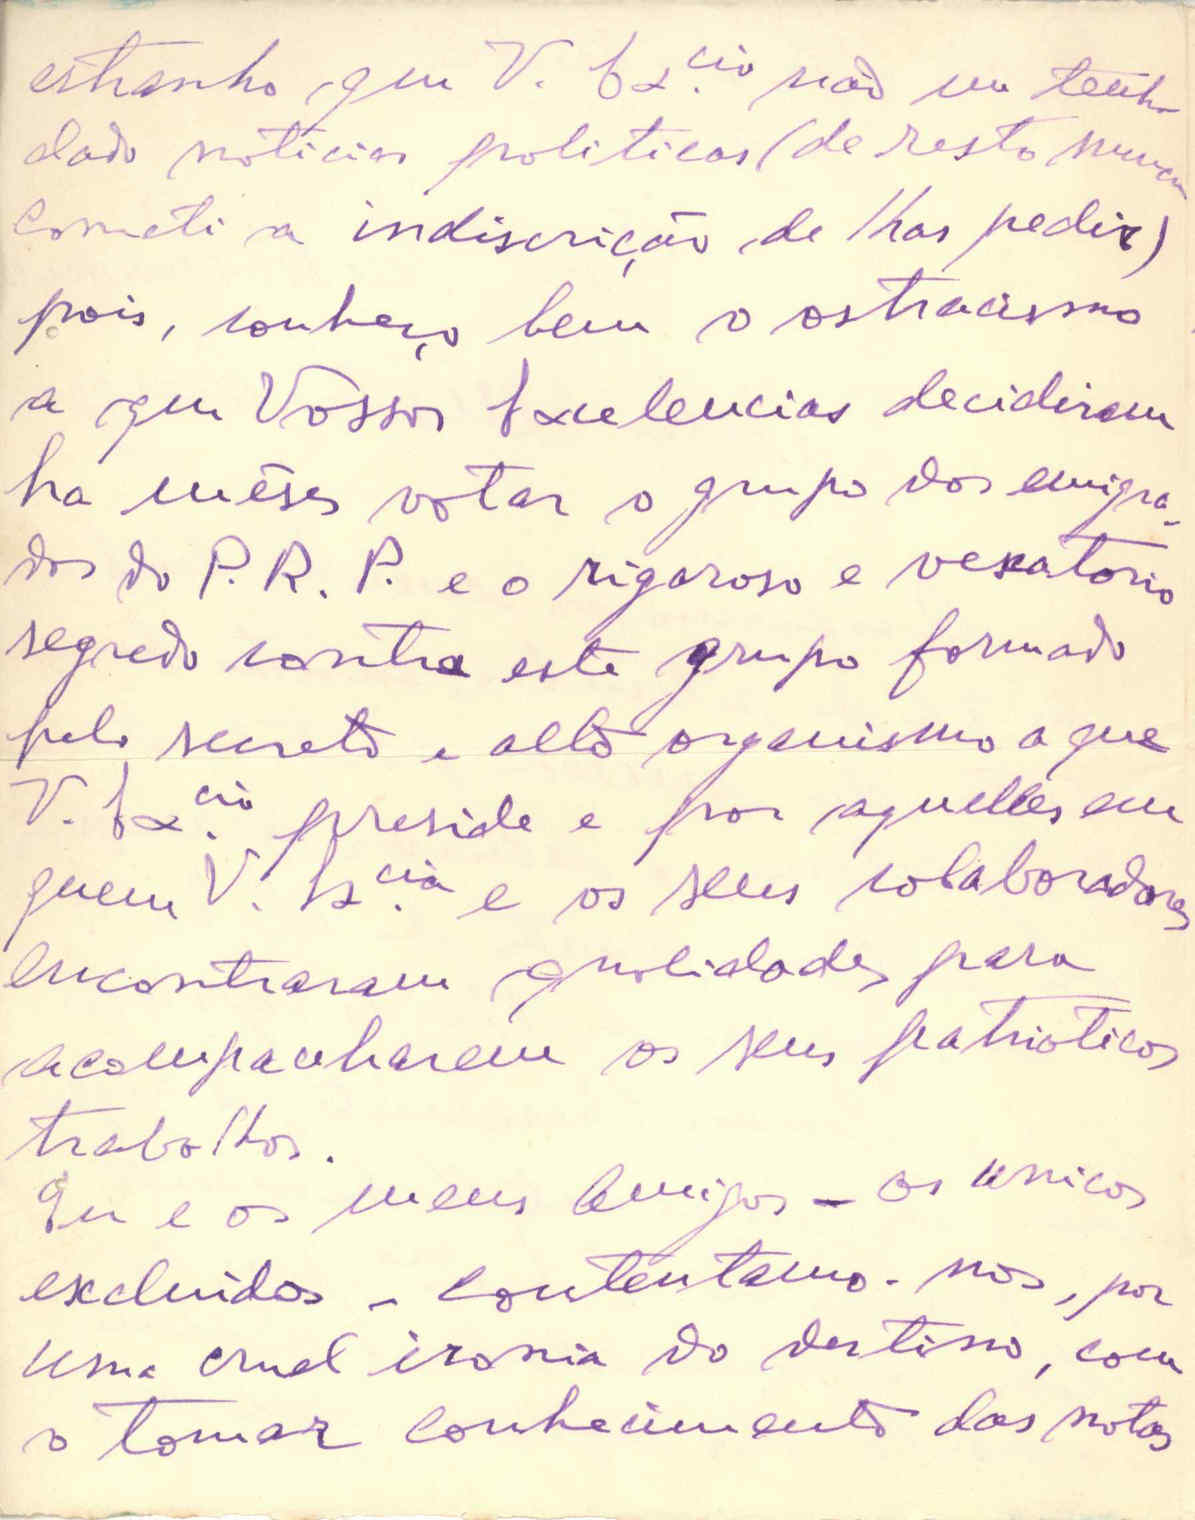 estranho que V. Ex.cia não me tenha
dado noticias politicas (de resto nunca
cometi a indiscrição de lhas pedir)
pois, conheço bem o ostracismo
a que Vossas Excelencias decidiram
ha mêses votar o grupo dos emigra-
dos do P. R. P. e o rigoroso e vexatorio
segredo contra este grupo formado
pelo secreto e alto organismo a que
V. Ex.cia preside e por aquelles em
quem V. Ex.cia e os seus colaboradores
encontraram qualidades para
acompanharem os seus patrioticos
trabalhos.
Eu e os meus amigos - os unicos
excluidos - contentamo-nos, por
uma cruel ironia do destino, com
o tomar conhecimento das notas